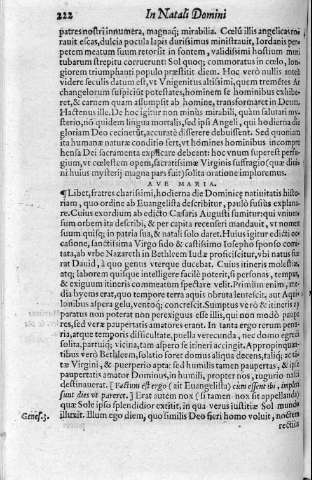 222 In Natali Domini
patres nostri innumera, magnaq; mirabilia. Cœlũ illis angelicas roi
rauit escas, dulcia pocula lapis durissimus ministrauit, Iordanis per
petem meatum suum retorsit in fontem, validissimi hostium mu
tubarum strepitu corruerunt: Sol quoq; commoratus in cœlo, lon
giorem triumphanti populo præstitit diem. Hoc verò nullis
videre seculis datum est, vt Vnigenitus altissimi, quem tremētes Ar
changelorum suspiciũt potestates, hominem se hominibus exhibe
ret, & carnem quam assumpsit ab homine, transformaret in Deum.
Hactenus ille. De hoc igitur non minùs mirabili, quàm salutari my
sterio, nõ quidem lingua mortalis, sed ipsi Angeli, qui hodierna die
gloriam Deo cecinerũt, accuratè disserere debuissent. Sed quoniam
ita humanæ naturæ conditio fert, vt homines hominibus incompre
hensa Dei sacramenta explicare debeant: hoc vnum superest perfu
gium, vt cœlestem opem, sacratissimæ Virginis suffragio (quæ diui
ni huius mysterij magna pars fuit) solita oratione imploremus.
AVE MARIA.
¶ Libet, fratres charissimi, hodierna die Dominicę natiuitatis histo
riam, quo ordine ab Euangelista describitur, paulò fusiùs explana
re. Cuius exordium ab edicto Cæsaris Augusti sumitur: qui vniuer
sum orbem ita describi, & per capita recenseri mandauit, vt nomen
suum quisq; in patria sua, & natali solo daret. Huius igitur edicti oc
casione, sanctissima Virgo fido & castissimo Iosepho sponso comi
tata, ab vrbe Nazareth in Bethleem Iudæ proficiscitur, vbi natus fue
rat Dauid, à quo genus vterque ducebat. Cuius itineris molestias
atq; laborem quisque intelligere facilè poterit, si personas, tempus,
& exiguum itineris commeatum spectare velit. Primùm enim, me
dia hyems erat, quo tempore terra aquis obruta lentescit, aut Aqui
lonibus aspera gelu, ventoq; concrescit. Sumptus verò & itineris ap
paratus non poterat non perexiguus esse illis, qui non modò paupe
res, sed veræ paupertatis amatores erant. In tanta ergo rerum penu
ria, atque temporis difficultate, puella verecunda, nec domo egredi
solita, partuiq; vicina, tam aspero se itineri accingit. Appropinquan
tibus verò Bethleem, solatio foret domus aliqua decens, talisq; ac
tæ Virgini, & puerperio apta: sed humilis tamen paupertas, & ipse
paupertatis amator Dominus, in humili, propter nos, tugurio nasci
destinauerat. [ Factum est ergo ( ait Euangelista) cùm essent ibi, impleti
sunt dies vt pareret. ] Erat autem nox ( si tamen nox sit appellanda)
quæ Sole ipso splendidior extitit, in qua verus iustitiæ Sol mundo
Genes. 3. illuxit. Illum ergo diem, quo similis Deo fieri homo voluit, noctem
rectiùs